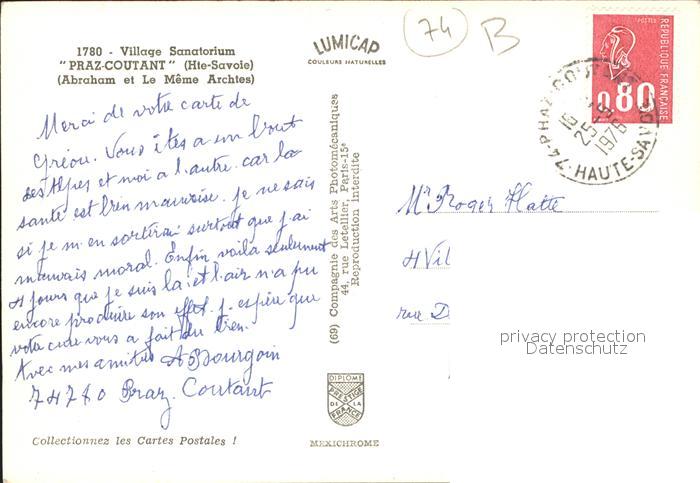 1780 - Village Sanatorium
"PRAZ-COUTANT" (Hte-Savoie)
(Abraham et Le Même Archtes)
Merci de votre carte de
Gréou. Vous êtes a un bout
des Alpes et moi a l'autre. car la
santé est bien mauvaise. je ne sais
si je m'en sortirai surtout que j'ai
mauvais moral. Enfin voila seulement
4 jours que je suis la et l'air n'a pu
encore produire son effet. j'espère que
votre cure vous a fait du bien.
Avec mes amitiés A Bourgoin
74780 Praz. Coutant
Collectionnez les Cartes Postales !
LUMICAP
COULEURS NATURELLES
(69) Compagnie des Arts Photomécaniques
44, rue Letellier, Paris-15e
Reproduction Interdite
DIPLOME
PRESTIGE
DE LA
FRANCE
MEXICHROME
74
B
POSTES
RÉPUBLIQUE FRANÇAISE
0,80
74-PRAZ-COUTANT
25
1976
HAUTE-SAVOIE
Mr Roger Hatte
4 Vil
rue D
privacy protection
Datenschutz